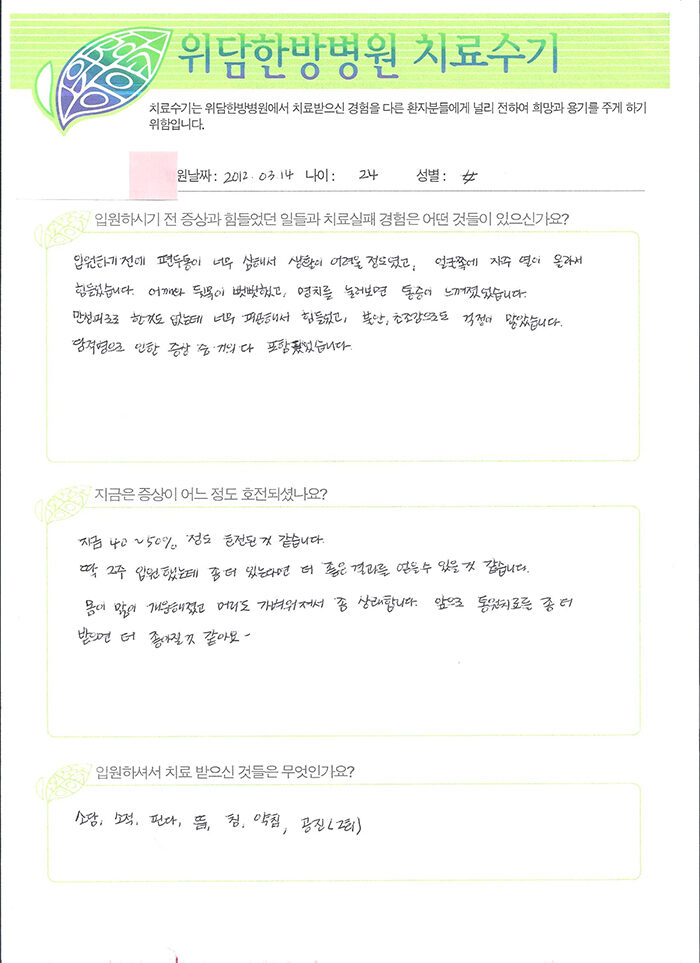 위담한방병원 치료수기
치료수기는 위담한방병원에서 치료받으신 경험을 다른 환자분들에게 널리 전하여 희망과 용기를 주게 하기
위함입니다.
원날짜 : 2012. 03. 14 나이 : 24 성별 :
입원하시기 전 증상과 힘들었던 일들과 치료실패 경험은 어떤 것들이 있으신가요?
입원하기 전에 편두통이 너무 심해서 생활이 어려울 정도였고, 얼굴쪽에 자주 열이 올라서
힘들었습니다. 어깨와 뒷목이 뻣뻣했고, 명치를 눌러보면 통증이 느껴졌었습니다.
만성피로로 한것도 없는데 너무 피곤해서 힘들었고, 불안, 초조감으로도 걱정이 많았습니다.
담적병으로 인한 증상 중 거의 다 포함됐었습니다.
지금은 증상이 어느 정도 호전되셨나요?
지금 40 ~ 50% 정도 호전된 것 같습니다.
딱 2주 입원했는데 좀 더 있는다면 더 좋은 결과를 얻을 수 있을 것 같습니다.
몸이 많이 개운해졌고 머리도 가벼워져서 좀 상쾌합니다. 앞으로 통원치료를 좀 더
받으면 더 좋아질 것 같아요~
입원하셔서 치료 받으신 것들은 무엇인가요?
소담, 소적, 핀다, 뜸, 침, 약침, 공진(2회)